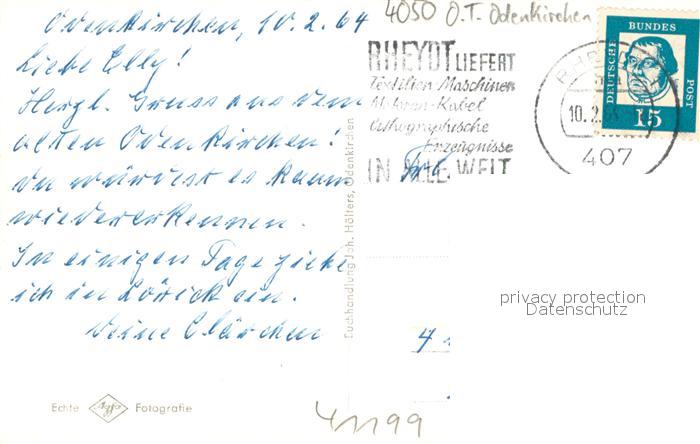 Odenkirchen, 10.2.64
Liebe Elly!
Herzl. Gruss aus dem
alten Odenkirchen!
du würdest es kaum
wiedererkennen.
In einigen Tage ziehe
ich in Lörick ein.
deine Clärchen
Echte Agfa Fotografie
Buchhandlung Joh. Hölters, Odenkirchen
4050 O.T. Odenkirchen
RHEYDT LIEFERT
Textilien Maschinen
Motoren-Kabel
Lithographische
Erzeugnisse
IN ALLE WELT
10.2.
407
DEUTSCHE BUNDES POST
15
privacy protection
Datenschutz